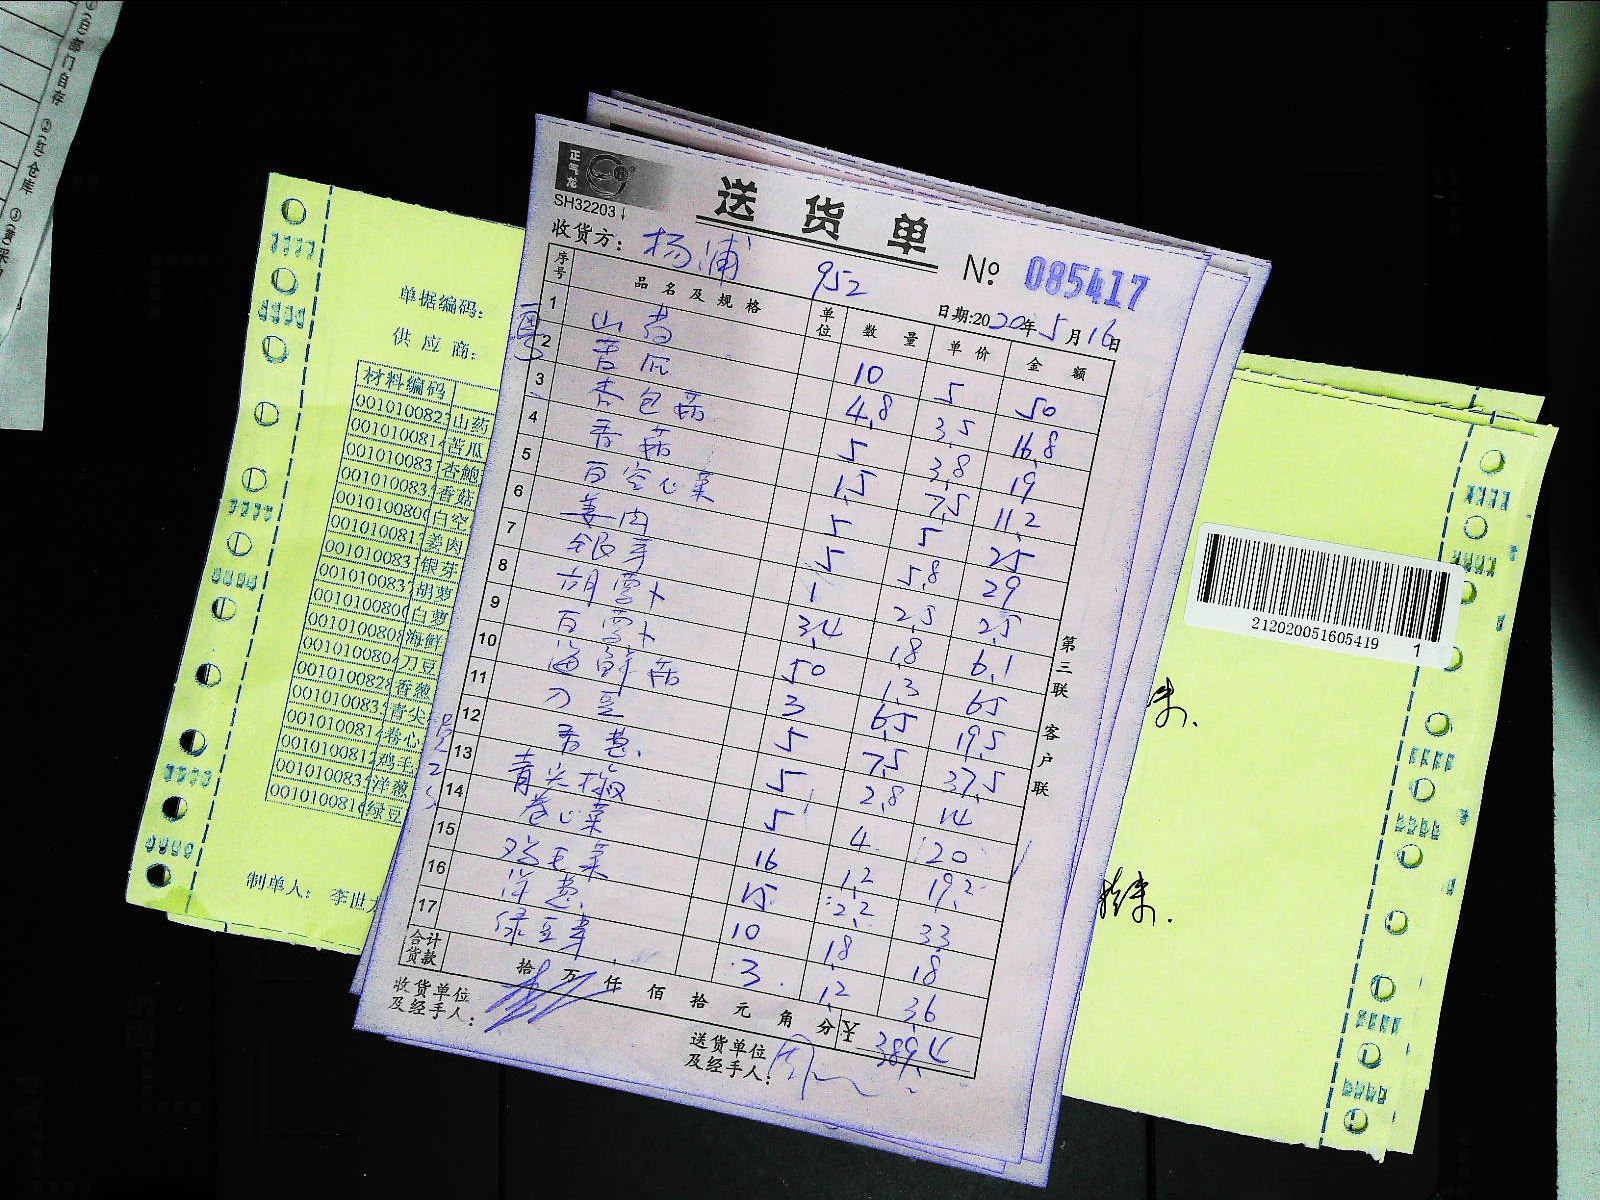 正气龙
SH32203
送货单
收货方: 杨浦 952
№ 085417
日期:2020年5月16日
序号 品名及规格 单位 数量 单价 金额
1 山药 10 5 50
2 苦瓜 4.8 3.5 16.8
3 杏包菇 5 3.8 19
4 香菇 1.5 7.5 11.2
5 百空心菜 5 5 25
6 姜肉 5 5.8 29
7 银芽 1 2.5 2.5
8 胡萝卜 3.4 1.8 6.1
9 百萝卜 50 1.3 65
10 海鲜菇 3 6.5 19.5
11 刀豆 5 7.5 37.5
12 香葱 5 2.8 14
13 青尖椒 5 4 20
14 卷心菜 16 1.2 19.2
15 鸡毛菜 15 2.2 33
16 洋葱 10 1.8 18
17 绿豆芽 3 1.2 3.6
合计货款 拾 万 仟 佰 拾 元 角 分 ¥ 389.4
收货单位及经手人:
送货单位及经手人: 周
第三联 客户联
单据编码:
供应商:
材料编码
001010082 山药
001010081 苦瓜
001010083 杏鲍
001010083 香菇
001010080 白空
001010081 姜肉
001010083 银芽
001010083 胡萝
001010080 白萝
001010080 海鲜
001010080 刀豆
001010082 香葱
001010083 青尖
001010081 卷心
001010081 鸡毛
001010083 洋葱
001010081 绿豆
制单人: 李世
212020051605419
1
②(红)仓库
门自存